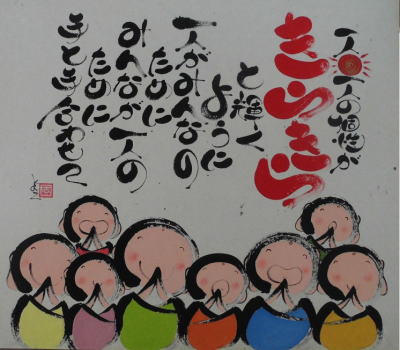 一人一人の個性が
きらきら
と輝く
ように
一人がみんなの
ために
みんなが一人の
ために
手と手合わせて